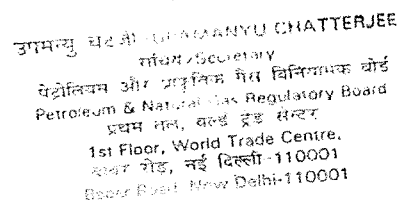 उपमन्यु चटर्जी UPAMANYU CHATTERJEE
सचिव/Secretary
पेट्रोलियम और प्राकृतिक गैस विनियामक बोर्ड
Petroleum & Natural Gas Regulatory Board
प्रथम तल, वर्ल्ड ट्रेड सेन्टर
1st Floor, World Trade Centre,
बाबर रोड़, नई दिल्ली-110001
Babar Road, New Delhi-110001